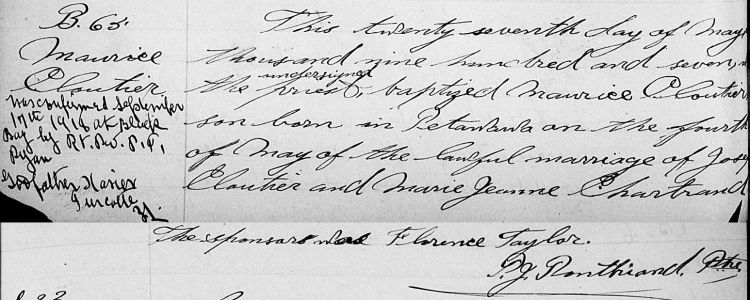 B. 65
Maurice
Cloutier
was confirmed September
17th 1918 at Black
Bay by Rt. Rev. P. T.
Ryan
Godfather Xavier
Turcotte
This twenty seventh day of May
thousand nine hundred and seven, 
undersigned
the priest, baptized Maurice Cloutier
son born in Petawawa on the fourth
of May of the lawful marriage of Jos
Cloutier and Marie Jeanne Chartrand
The sponsors was Florence Taylor.
Ptre